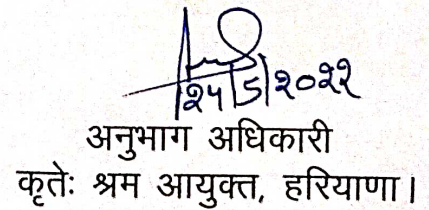 २५/5/२०२२
अनुभाग अधिकारी
कृतेः श्रम आयुक्त, हरियाणा।